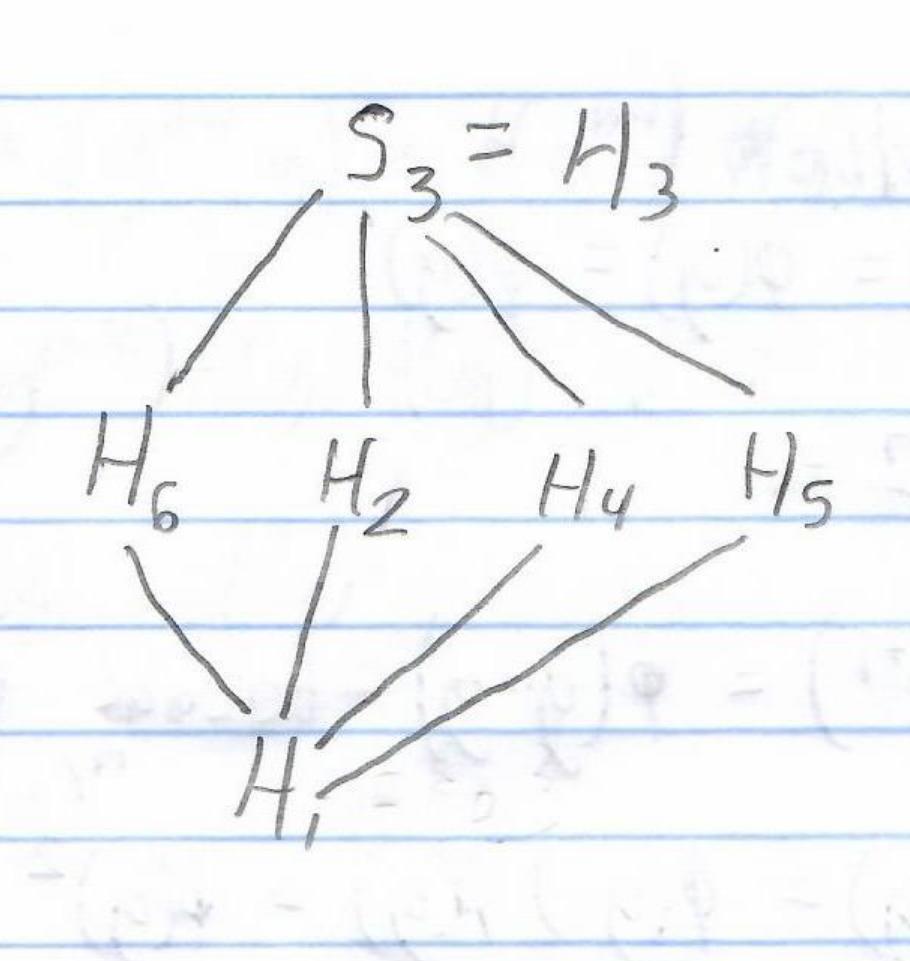 S₃ = H₃
H₆ H₂ H₄ H₅
H₁